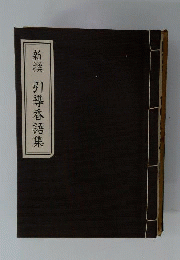 新撰 引導香語集